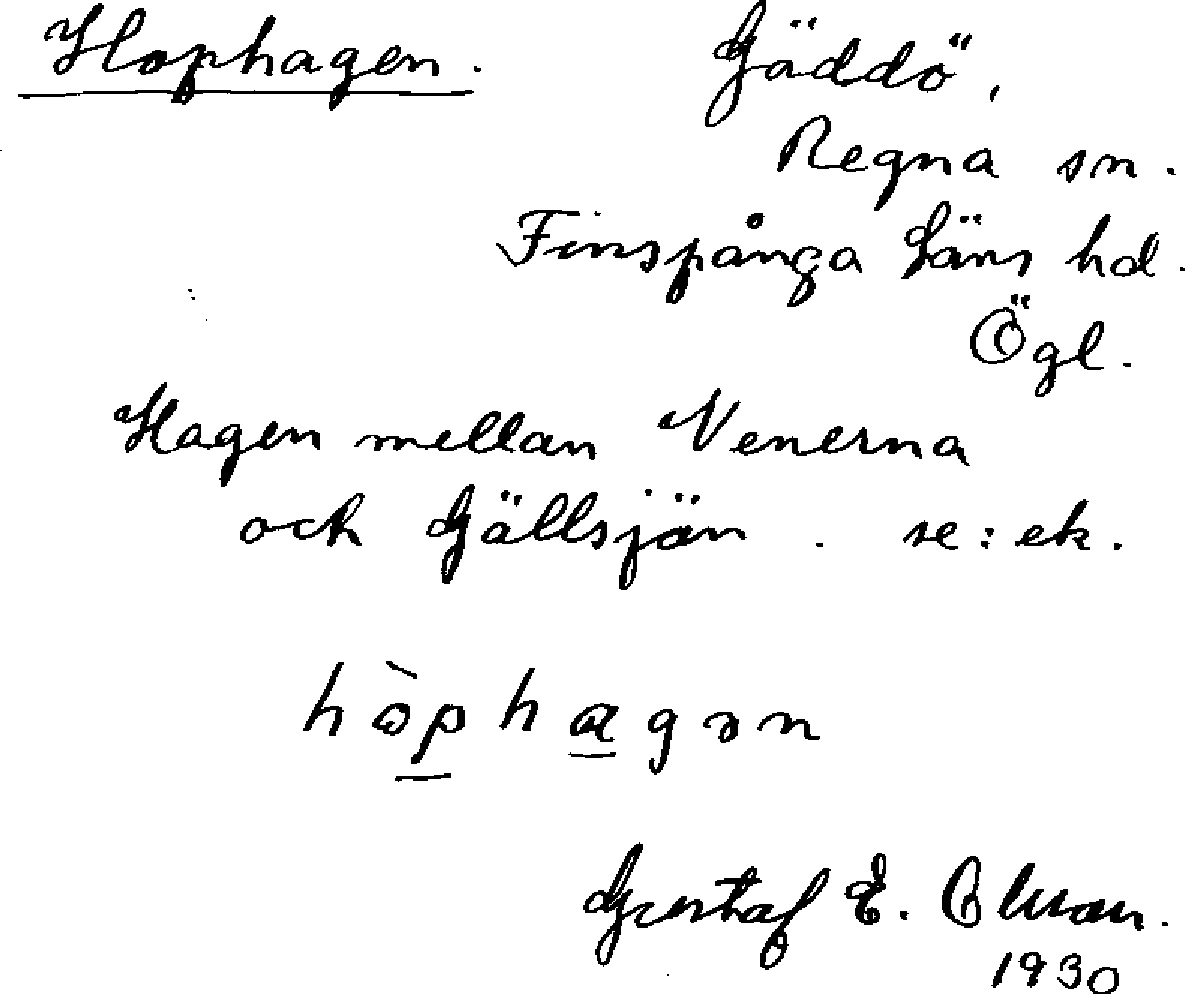 Hophagen. Gäddö,
Regna sn.
Finspånga läns hd.
Ögl.
Hagen mellan Venerna
och Gällsjön. se: ek.
hòphagən
Gustaf E. Olsson.
1930